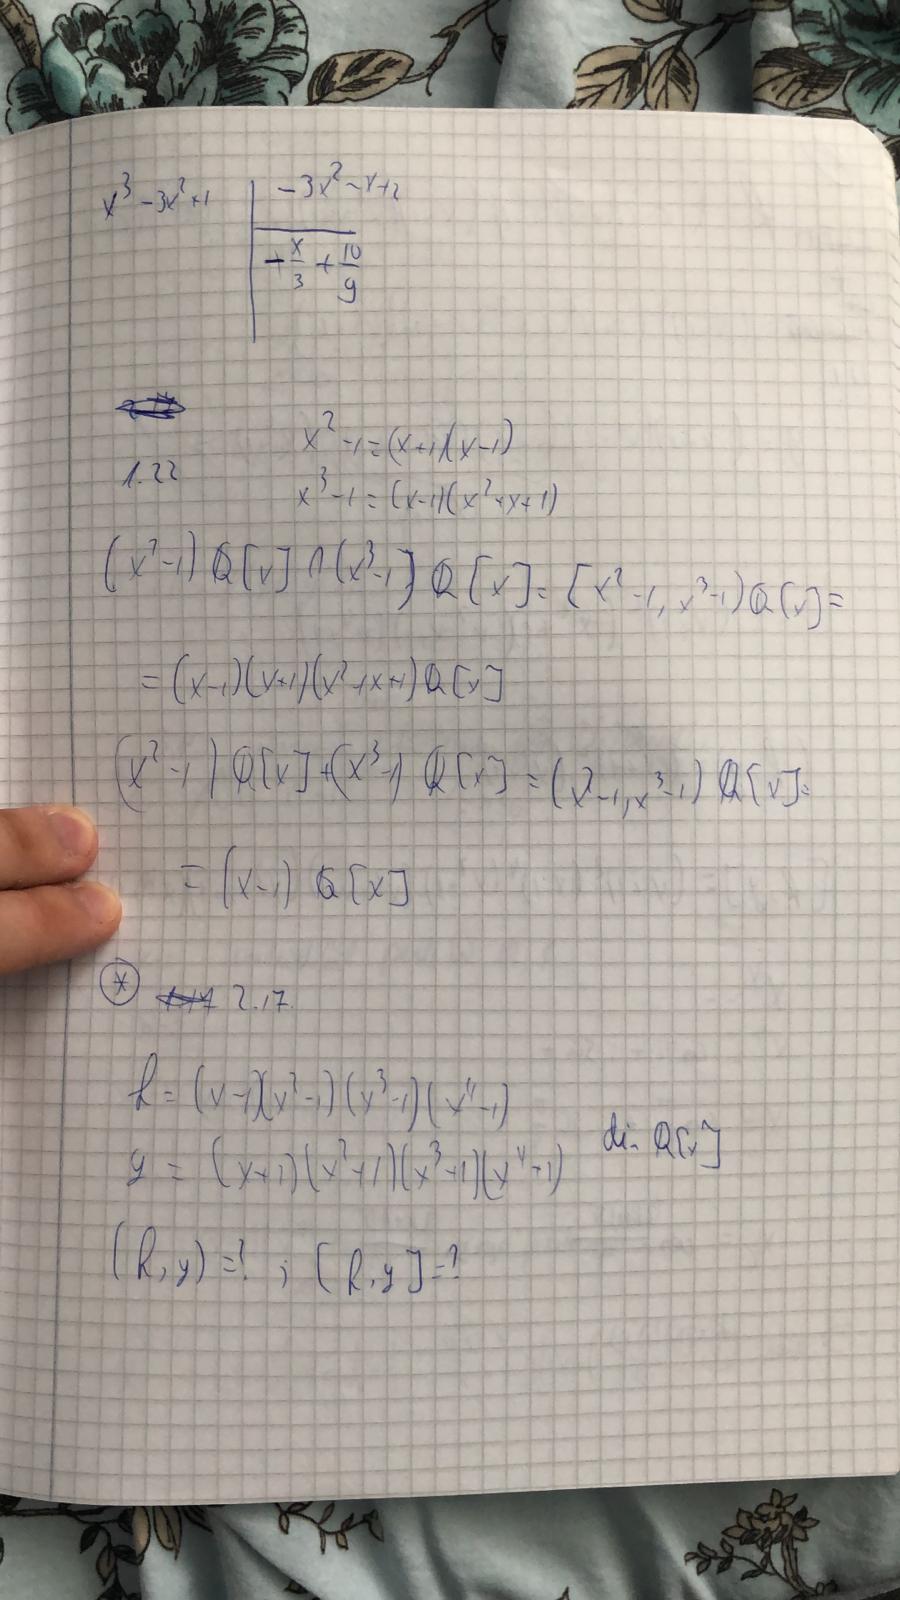 x³ - 3x² + 1 | -3x² - x + 2
-x/3 + 10/9
1.22
x² - 1 = (x+1)(x-1)
x³ - 1 = (x-1)(x² + x + 1)
(x² - 1) Q[x] ∩ (x³ - 1) Q[x] = [x² - 1, x³ - 1) Q[x] =
= (x-1)(x+1)(x² + x + 1) Q[x]
(x² - 1) Q[x] + (x³ - 1) Q[x] = (x² - 1, x³ - 1) Q[x] =
= (x-1) Q[x]
* 2.17.
f = (x-1)(x² - 1)(x³ - 1)(x⁴ - 1)
g = (x+1)(x² + 1)(x³ + 1)(x⁴ + 1) din Q[x]
(f, g) = ? ; [f, g] = ?